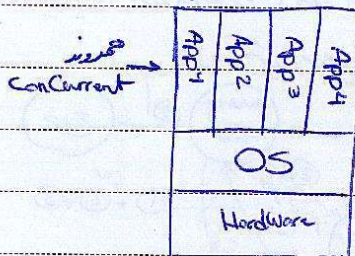 همروند
Concurrent
App1
App2
App3
App4
OS
Hardware